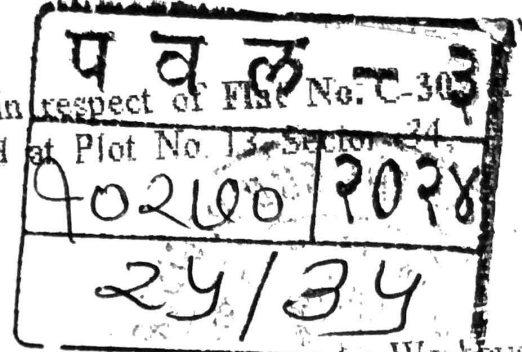 प व ल - ३
in respect of Flat No. C-30
at Plot No. 13, Sector-24,
१०२७० २०२४
२५/३५